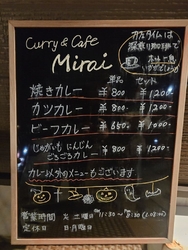 Curry & Cafe
Mirai
単品 セット
焼きカレー ¥800 ¥1200
カツカレー ¥800 ¥1200
ビーフカレー ¥650 ¥1000
じゃがいも にんじん
ごろごろカレー ¥800 ¥1200
カレー以外のメニューもございます
営業時間 火~土曜日 11:30~
定休日 日・月曜日